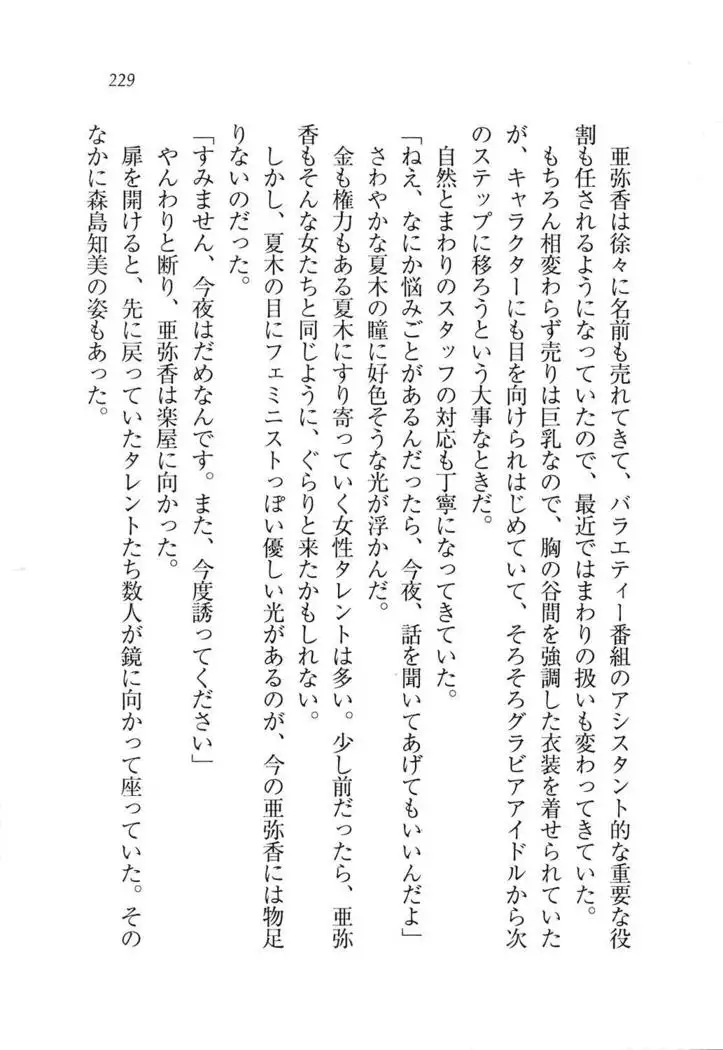 229
亜弥香は徐々に名前も売れてきて、バラエティー番組のアシスタント的な重要な役
割も任されるようになっていたので、最近ではまわりの扱いも変わってきていた。
もちろん相変わらず売りは巨乳なので、胸の谷間を強調した衣装を着せられていた
が、キャラクターにも目を向けられはじめていて、そろそろグラビアアイドルから次
のステップに移ろうという大事なときだ。
自然とまわりのスタッフの対応も丁寧になってきていた。
「ねえ、なにか悩みごとがあるんだったら、今夜、話を聞いてあげてもいいんだよ」
さわやかな夏木の瞳に好色そうな光が浮かんだ。
金も権力もある夏木にすり寄っていく女性タレントは多い。少し前だったら、亜弥
香もそんな女たちと同じように、ぐらりと来たかもしれない。
しかし、夏木の目にフェミニストっぽい優しい光があるのが、今の亜弥香には物足
りないのだった。
「すみません、今夜はだめなんです。また、今度誘ってください」
やんわりと断り、亜弥香は楽屋に向かった。
扉を開けると、先に戻っていたタレントたち数人が鏡に向かって座っていた。その
なかに森島知美の姿もあった。